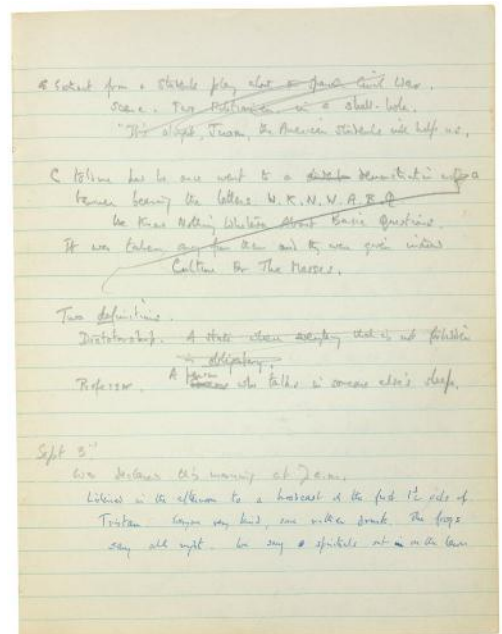 Extract from a Stalinist play about a Spanish Civil War.
Scene. Two Militiamen in a shell-hole.
"It's alright, Juan, the American students will help us.
C told me how he once went to a demonstration with a
banner bearing the letters W.K.N.W.A.B.Q
We Know Nothing Whatever About Basic Questions.
It was taken away from them and they were given instead
Culture For The Masses.
Two definitions.
Dictatorship. A state where everything that is not forbidden
is obligatory.
Professor. A person who talks in someone else's sleep.
Sept 3rd
War declared this morning at
Listened in the afternoon to a broadcast of the first 1½ acts of
Tristan. very kind, one rather drunk. The frogs
sang all night. We sang spirituals out on the lawn